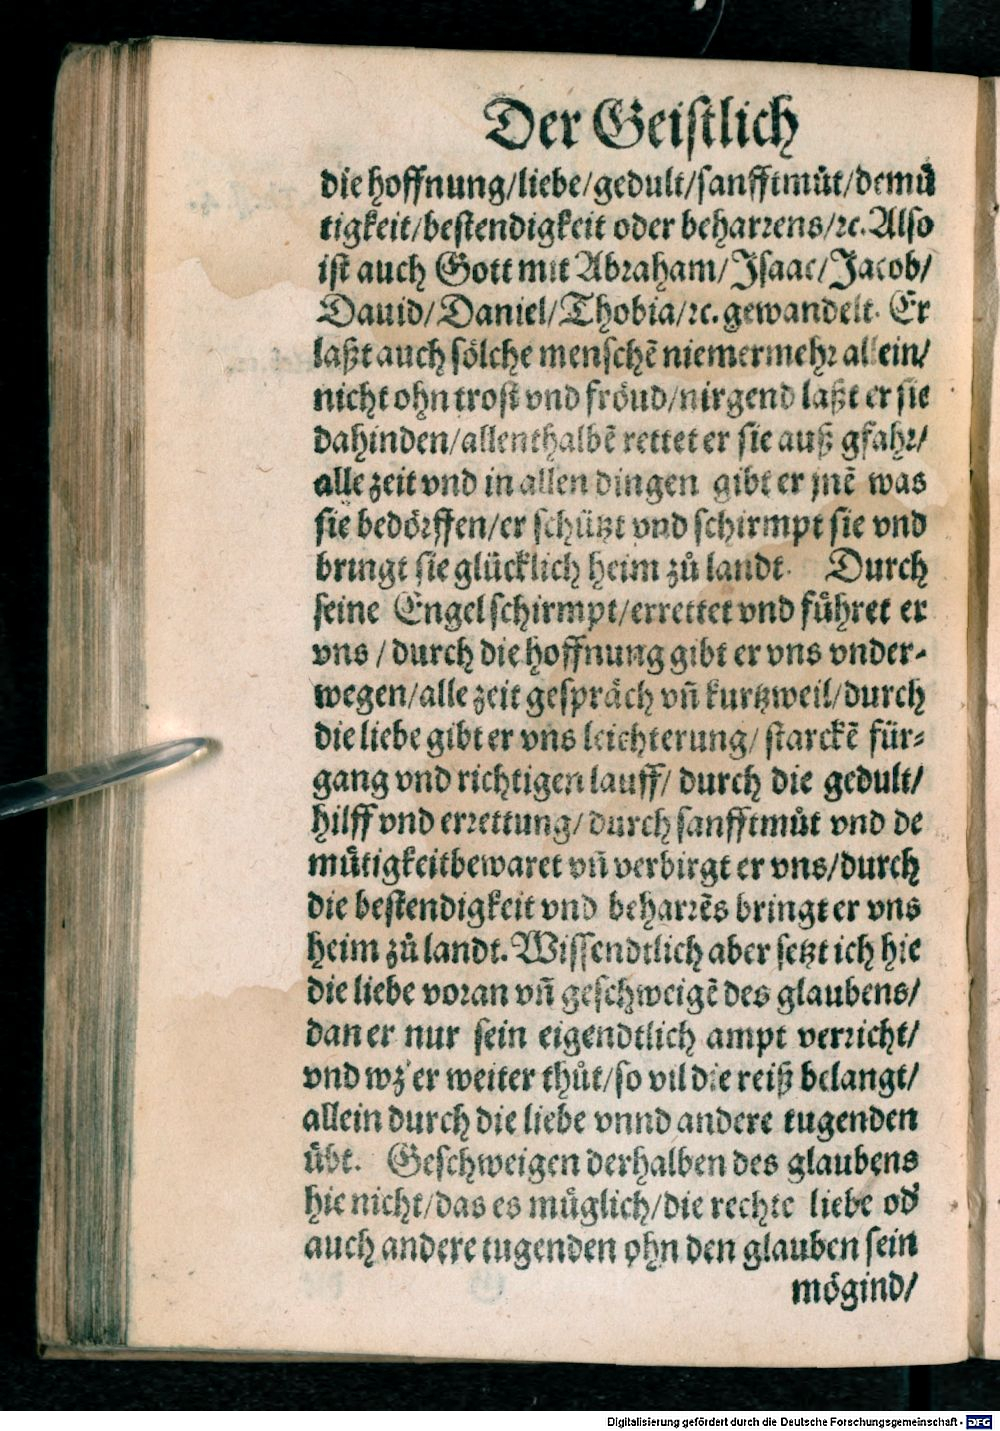 Der Geistlich
die hoffnung/liebe/gedult/sanfftmůt/demuͤ
tigkeit/bestendigkeit oder beharrens/ꝛc. Also
ist auch Gott mit Abraham/Isaac/Jacob/
Dauid/Daniel/Thobia/ꝛc. gewandelt. Er
laßt auch sölche menschẽ niemermehr allein/
nicht ohn trost vnd fröud/nirgend laßt er sie
dahinden/allenthalbẽ rettet er sie auß gfahr/
alle zeit vnd in allen dingen gibt er jnẽ was
sie bedörffen/er schützt vnd schirmpt sie vnd
bringt sie glücklich heim zů landt. Durch
seine Engel schirmpt/errettet vnd fuͤhret er
vns / durch die hoffnung gibt er vns vnder-
wegen/alle zeit gespräch vñ kurtzweil/durch
die liebe gibt er vns leichterung/ starckẽ für-
gang vnd richtigen lauff/ durch die gedult/
hilff vnd errettung/ durch sanfftmůt vnd de
muͤtigkeit bewaret vñ verbirgt er vns/durch
die bestendigkeit vnd beharrẽs bringt er vns
heim zů landt. Wissendtlich aber setzt ich hie
die liebe voran vñ geschweigẽ des glaubens/
dan er nur sein eigendtlich ampt verricht/
vnd wz er weiter thůt/so vil die reiß belangt/
allein durch die liebe vnnd andere tugenden
uͤbt. Geschweigen derhalben des glaubens
hie nicht/das es muͤglich/die rechte liebe od'
auch andere tugenden ohn den glauben sein
mögind/
Digitalisierung gefördert durch die Deutsche Forschungsgemeinschaft - DFG